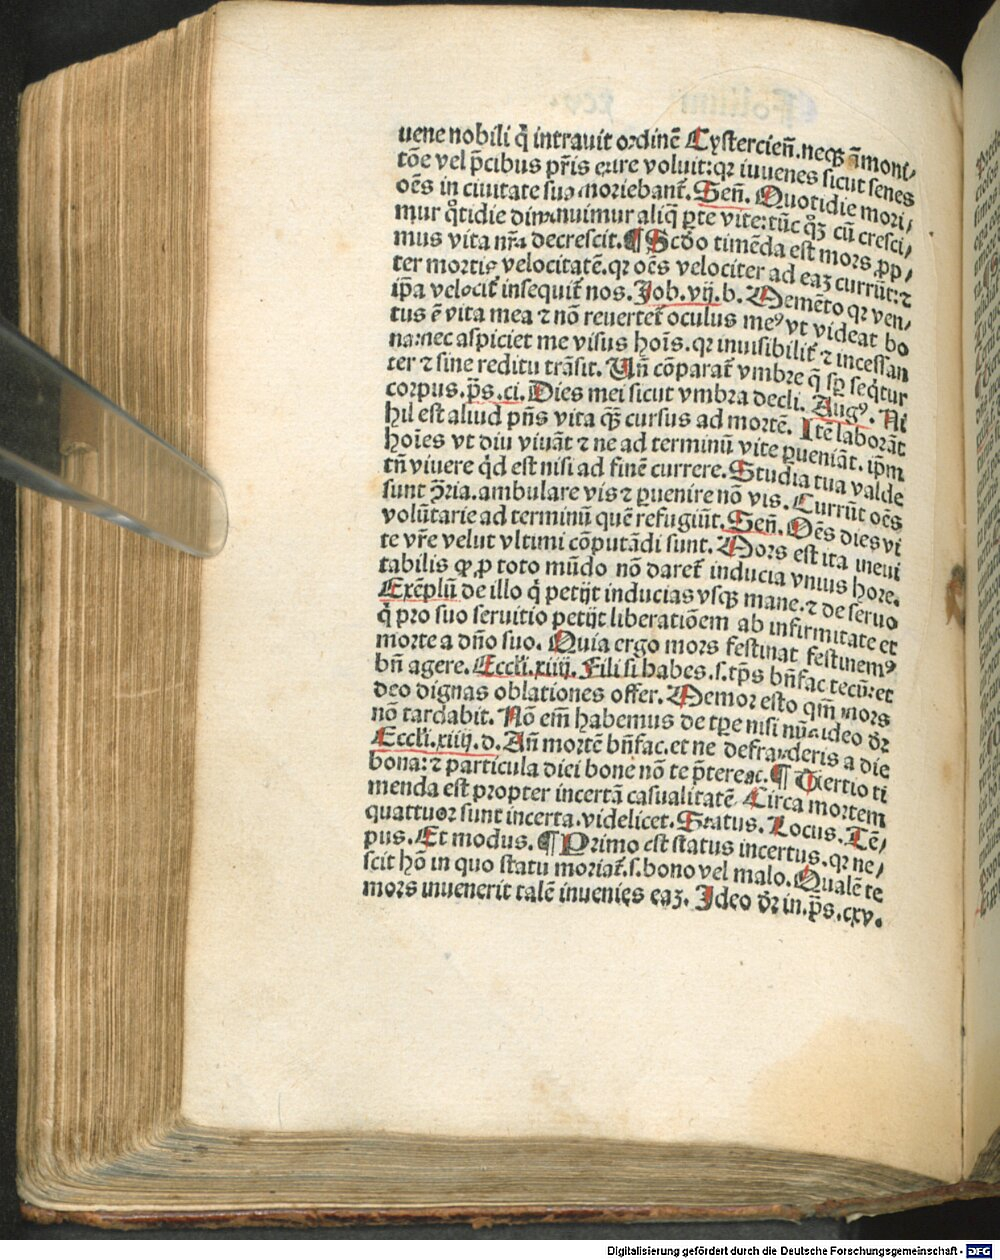 uene nobili q̇ intrauit ordinē Cystercieñ. neqȝ āmoni/
tōe vel p̄cibus pr̄is exire voluit: qꝛ iuuenes sicut senes
oēs in ciuitate sua moriebanť. Señ. Quotidie mori/
mur q̇tidie diminuimur aliq̄ ꝑte vite: tūc qȝ cū cresci/
mus vita nr̄a decrescit. ¶ Scd̄o timēda est mors ꝓp/
ter mortis velocitatē. qꝛ oēs velociter ad eaȝ currūt: ⁊
ip̄a velociť insequiť nos. Job. vij. b. Memēto qꝛ ven/
tus ē vita mea ⁊ nō reuerteť oculus meꝰ vt videat bo
na: nec aspiciet me visus hoīs. qꝛ inuisibiliť ⁊ incessan
ter ⁊ sine reditu trāsit. Uñ cōparať vmbre q̄ sp̄ seq̇tur
corpus. p̄s. ci. Dies mei sicut vmbra decli. Augꝰ. Ni
hil est aliud pn̄s vita qȝ cursus ad mortē. Itē laborāt
hoīes vt diu viuāt ⁊ ne ad terminū vite ꝑueniāt. ip̄m
tn̄ viuere q̇d est nisi ad finē currere. Studia tua valde
sunt ꝯ̄ria. ambulare vis ⁊ ꝑuenire nō vis. Currūt oēs
volūtarie ad terminū quē refugiūt. Señ. Oēs dies vi
te vr̄e velut vltimi cōputādi sunt. Mors est ita ineui
tabilis ꝙ ꝓ toto mūdo nō dareť inducia vnius hore.
Exēplū de illo q̇ petijt inducias vsqȝ mane. ⁊ de seruo
q̇ pro suo seruitio petijt liberatiōem ab infirmitate et
morte a dn̄o suo. Quia ergo mors festinat festinemꝰ
bn̄ agere. Eccłi. xiiij. Fili si habes. s. tp̄s bn̄fac tecū: et
deo dignas oblationes offer. Memor esto qm̄ mors
nō tardabit. Nō em̄ habemus de tꝑe nisi nūc ideo dr̄
Eccłi. xiiij. d. An̄ mortē bn̄fac. et ne defrauderis a die
bona: ⁊ particula diei bone nō te p̄tereat. ¶ Tertio ti
menda est propter incertā casualitatē Circa mortem
quattuor sunt incerta. videlicet. Status. Locus. Tē/
pus. Et modus. ¶ Primo est status incertus. qꝛ ne/
scit hō in quo statu moriať. s. bono vel malo. Qualē te
mors inuenerit talē inuenies eaȝ. Ideo dr̄ in. p̄s. cxv.
Digitalisierung gefördert durch die Deutsche Forschungsgemeinschaft - DFG